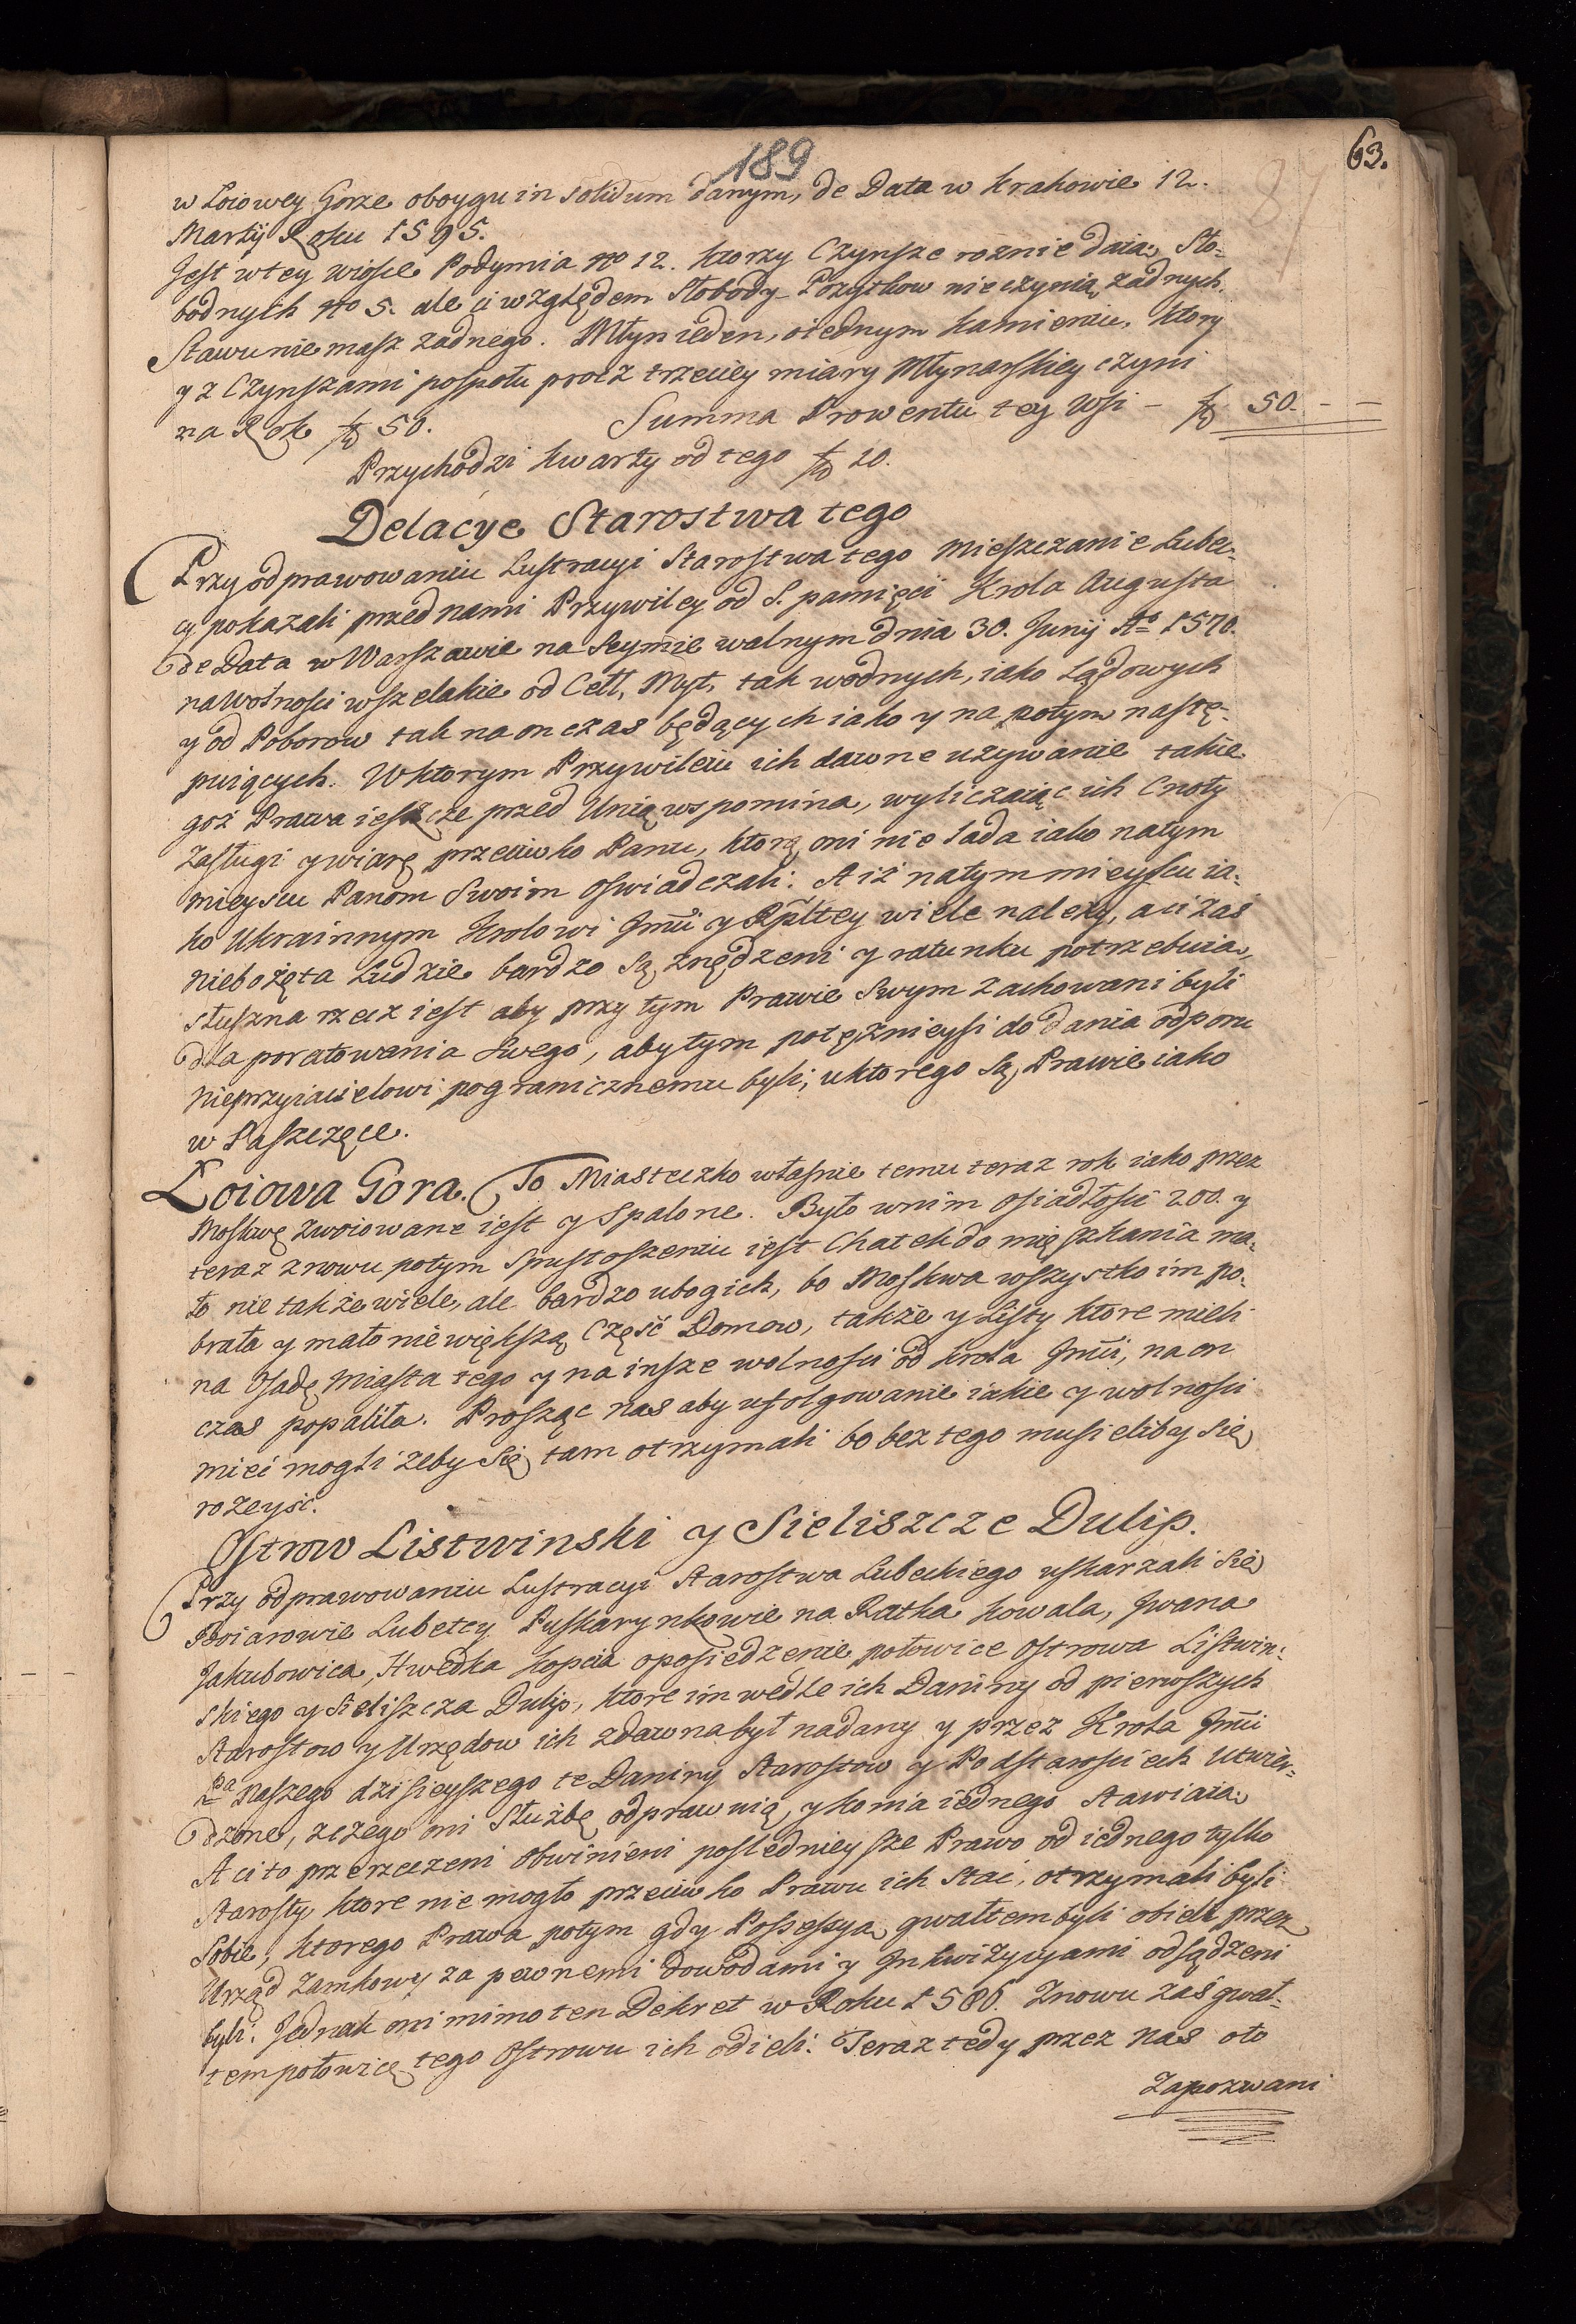 189
63.
w Loiowey Gorze oboygu in solidum danym, de Data w Krakowie 12.
Martij Roku 1595.
Jest w tey wiosce Podymia No 12. ktorzy Czynsze roznie daią, Sło-
bodnych No 5. ale ci względem Słobody Pozytkow nie czynią zadnych.
Stawu nie masz zadnego. Młyn ieden, o iednym kamieniu, ktory
y z Czynszami pospołu procz trzeciey miary Młynarskiey czyni
na Rok fl 50. Summa Prowentu tey Wsi - fl 50. - -
Przychodzi kwarty od tego fl 10.
Delacye Starostwa tego
Przy odprawowaniu Lustracyi Starostwa tego Mieszczanie Lubec-
cy pokazali przed nami Przywiley od S. pamięci Krola Augusta
de Data w Warszawie na Seymie walnym dnia 30. Junij Ao 1570.
na wolnosci wszelakie od Cell, Myt, tak wodnych, iako Lądowych
y od Poborow tak na on czas będących iako y na potym nastę-
puiących. W ktorym Przywileiu ich dawne uzywanie takie
goż Prawa ieszcze przed Unią wspomina, wyliczaiąc ich Cnoty
Zasługi y wiarę przeciwko Panu, ktorą oni nie lada iako na tym
mieyscu Panom Swoim oswiadczali. A iż na tym mieyscu ia-
ko Ukrainnym Krolowi Jmci y Rpltey wiele należy, a ci zas
niebożęta Ludzie bardzo są znędzeni y ratunku potrzebuią,
słuszna rzecz iest aby przy tym Prawie Swym zachowani byli
dla poratowania Swego, aby tym potężnieysi do dania odporu
nieprzyiacielowi pogranicznemu byli, u ktorego są Prawie iako
w Paszczęce.
Loiowa Gora. To Miasteczko własnie temu teraz rok iako przez
Moskwę zwoiowane iest y Spalone. Było w nim osiadłosci 200. y
teraz znowu po tym Spustoszeniu iest Chatek do mięszkania ma-
ło nie także wiele, ale bardzo ubogich, bo Moskwa wszystko im po-
brała y mało nie większą Część Domow, także y Listy ktore mieli
na Osadę Miasta tego y na insze wolnosci od Krola Jmci, na on
czas popaliła. Prosząc nas aby ufolgowanie iakie y wolnosci
mieć mogli żeby się tam otrzymali bo bez tego musieliby się
rozeyść.
Ostrow Listwinski y Sieliszcze Dulip.
Przy odprawowaniu Lustracyi Starostwa Lubeckiego uskarzali się
Boiarowie Lubetcy Puskarynkowie na Ratka kowala, Jwana
Jakubowica, Hwedka Kopcia o posiedzenie połowice Ostrowa Listwin-
skiego y Sieliszcza Dulip, ktore im wedle ich Daniny od pierwszych
Starostow y Urzędow ich zdawna był nadany y przez Krola Jmci
Pa Naszego dzisieyszego te Daniny Starostow y Podstarosciech utwier-
dzone, z czego oni Służbę odprawuią, y konia iednego Stawiaią.
A ci to przerzeczeni obwinieni poslednieysze Prawo od iednego tylko
Starosty, ktore nie mogło przeciwko Prawu ich Stac, otrzymali byli
Sobie, ktorego Prawa potym gdy Possessyą gwałtem byli obieli przez
Urząd Zamkowy za pewnemi dowodami y Jnkwizycyami odsądzeni
byli. Jednak oni mimo ten Dekret w Roku 1586. Znowu zaś gwał-
tem połowicę tego Ostrowu ich odieli. Teraz tedy przez nas oto
Zapozwani